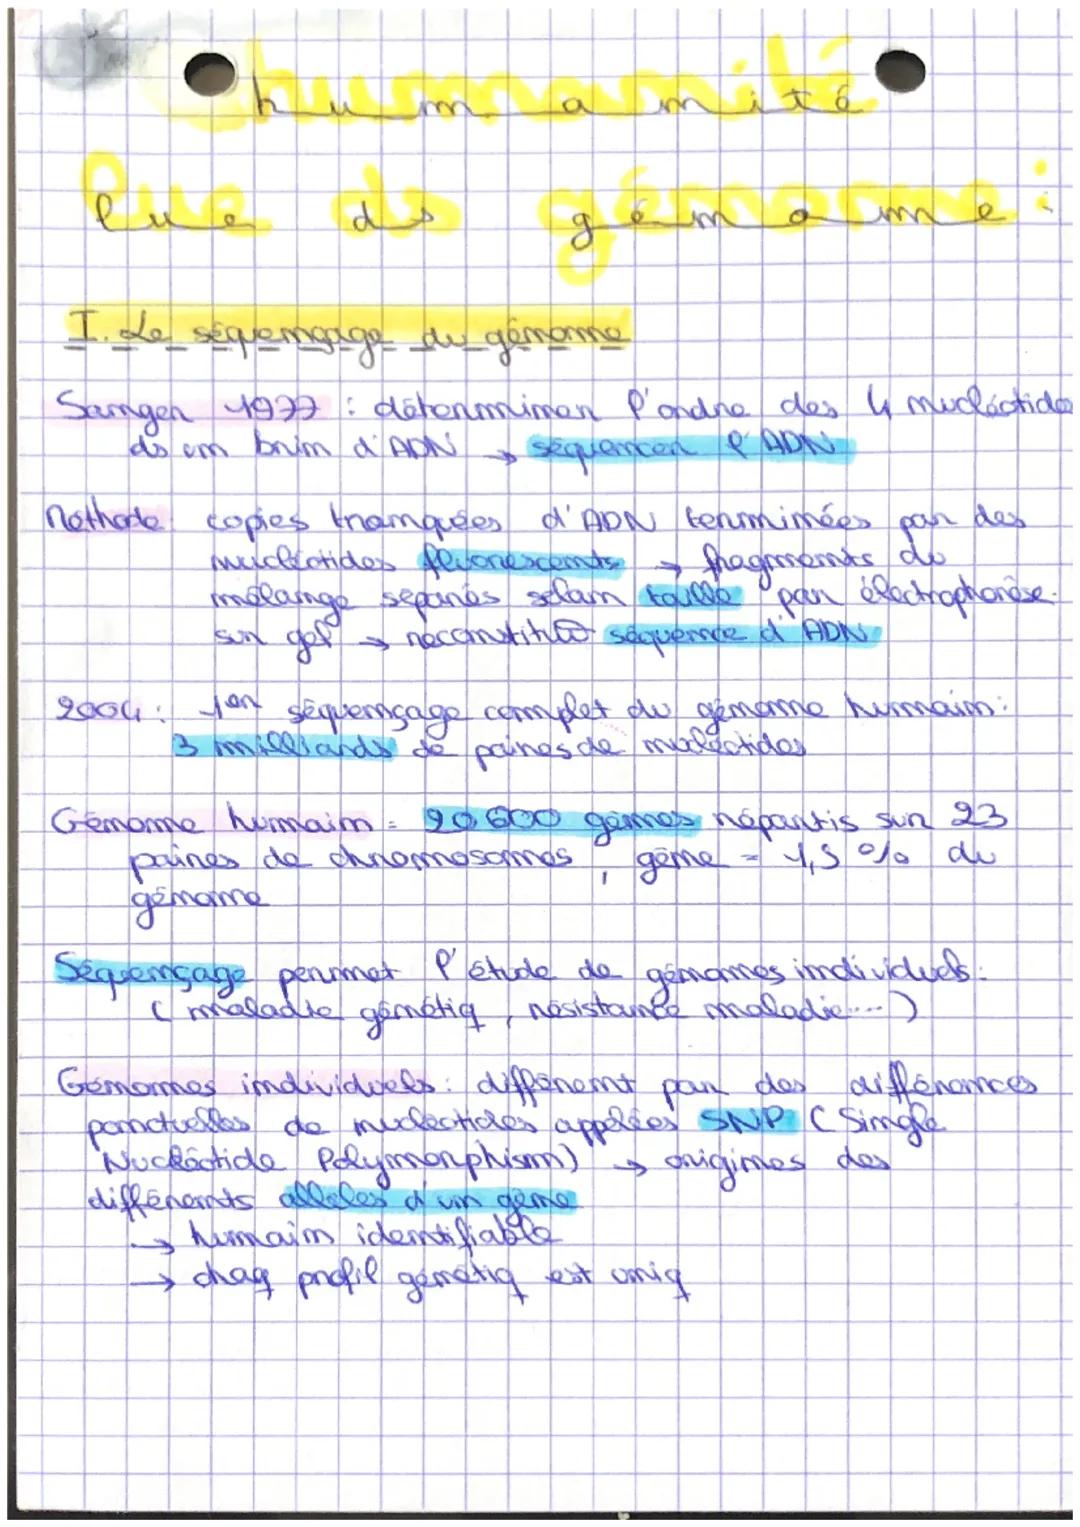 humanité
lue ds génome :
I. Le séquençage du génome
Sanger 1977 : déterminer l'ordre des 4 nucléotide
ds un brin d'ADN → séquencer l'ADN
Méthode : copies tronquées d'ADN terminées par des
nucléotides fluorescents → fragments du
mélange séparés selon taille par électrophorèse
sur gel → reconstitue séquence d'ADN
2004 : 1er séquençage complet du génome humain :
3 milliards de paires de nucléotides
Génome humain = 20 600 gènes répartis sur 23
paires de chromosomes, gène = 1,5 % du
génome
Séquençage permet l'étude de génomes individuels :
( maladie génétiq, résistance maladie... )
Génomes individuels : diffèrent par des différences
ponctuelles de nucléotides appelées SNP ( Single
Nucléotide Polymorphism) → origines des
différents allèles d'un gène
→ humain identifiable
→ chaq profil génétiq est uniq